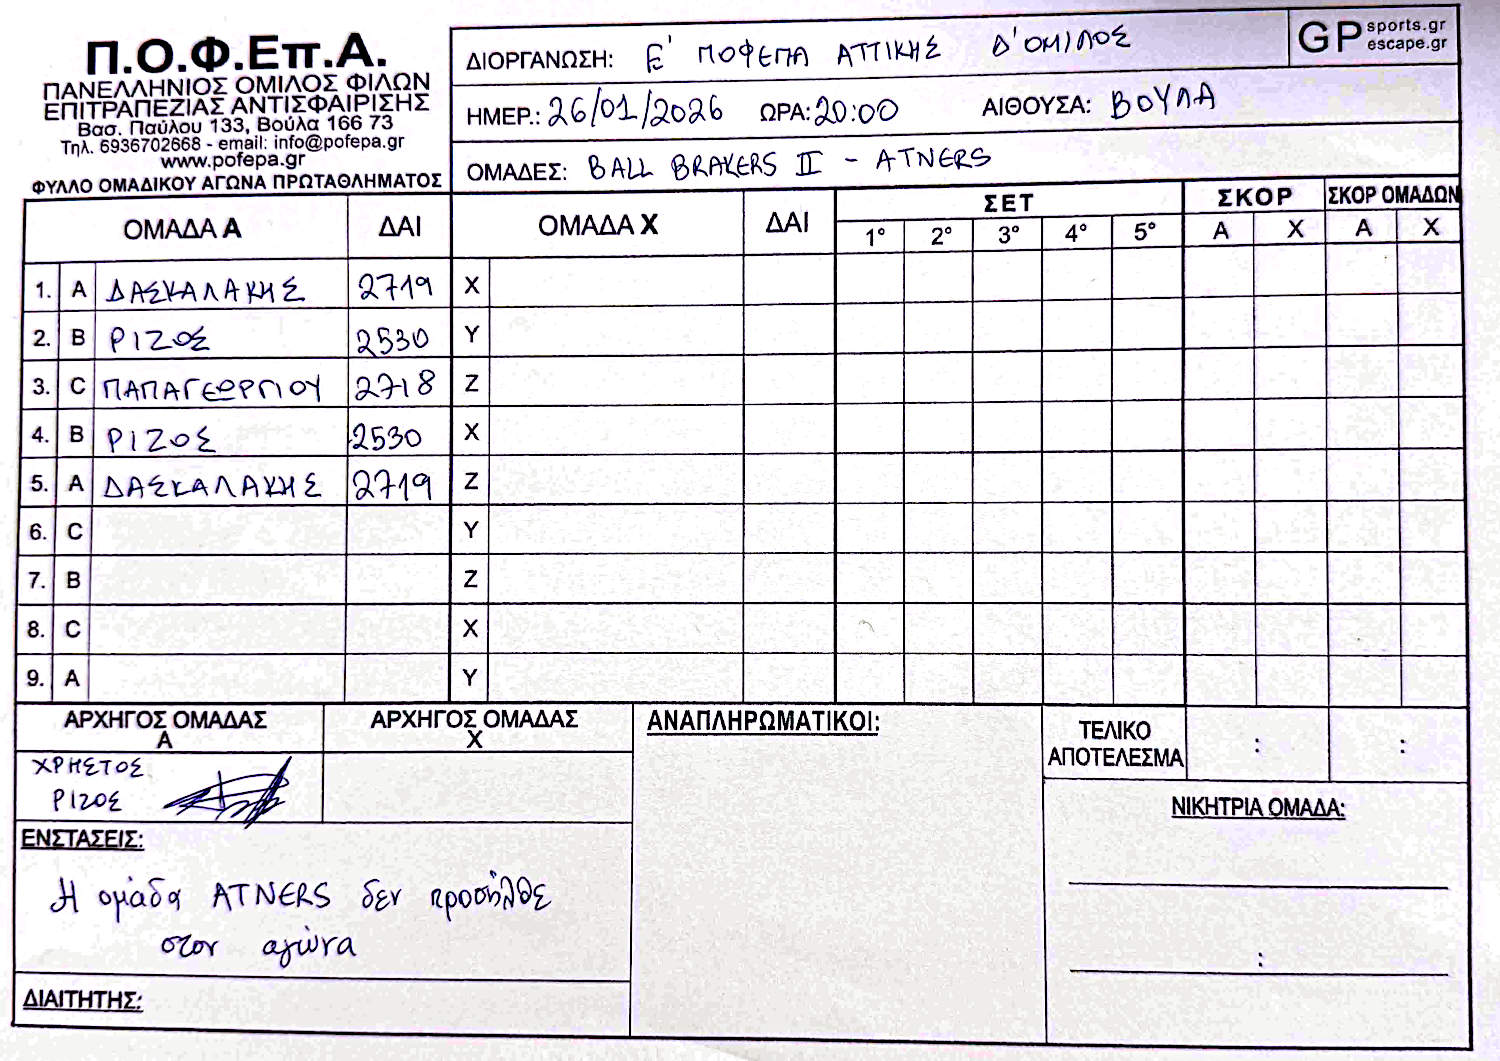 Π.Ο.Φ.Επ.Α.
ΠΑΝΕΛΛΗΝΙΟΣ ΟΜΙΛΟΣ ΦΙΛΩΝ
ΕΠΙΤΡΑΠΕΖΙΑΣ ΑΝΤΙΣΦΑΙΡΙΣΗΣ
Βασ. Παύλου 133, Βούλα 166 73
Τηλ. 6936702668 - email: info@pofepa.gr
www.pofepa.gr
ΦΥΛΛΟ ΟΜΑΔΙΚΟΥ ΑΓΩΝΑ ΠΡΩΤΑΘΛΗΜΑΤΟΣ
ΔΙΟΡΓΑΝΩΣΗ: Ε' ΠΟΦΕΠΑ ΑΤΤΙΚΗΣ Δ' ΟΜΙΛΟΣ
GP sports.gr
escape.gr
ΗΜΕΡ.: 26/01/2026 ΩΡΑ: 20:00 ΑΙΘΟΥΣΑ: ΒΟΥΛΑ
ΟΜΑΔΕΣ: BALL BRAKERS II - ATNERS
ΟΜΑΔΑ Α ΔΑΙ ΟΜΑΔΑ Χ ΔΑΙ ΣΕΤ ΣΚΟΡ ΣΚΟΡ ΟΜΑΔΩΝ
1° 2° 3° 4° 5° Α Χ Α Χ
1. A ΔΑΣΚΑΛΑΚΗΣ 2719 X
2. B ΡΙΖΟΣ 2530 Y
3. C ΠΑΠΑΓΕΩΡΓΙΟΥ 2718 Z
4. B ΡΙΖΟΣ 2530 X
5. A ΔΑΣΚΑΛΑΚΗΣ 2719 Z
6. C Y
7. B Z
8. C X
9. A Y
ΑΡΧΗΓΟΣ ΟΜΑΔΑΣ Α ΑΡΧΗΓΟΣ ΟΜΑΔΑΣ Χ ΑΝΑΠΛΗΡΩΜΑΤΙΚΟΙ: ΤΕΛΙΚΟ ΑΠΟΤΕΛΕΣΜΑ : :
ΧΡΗΣΤΟΣ
ΡΙΖΟΣ
ΝΙΚΗΤΡΙΑ ΟΜΑΔΑ:
:
ΕΝΣΤΑΣΕΙΣ:
Η ομάδα ATNERS δεν προσήλθε
στον αγώνα
ΔΙΑΙΤΗΤΗΣ: